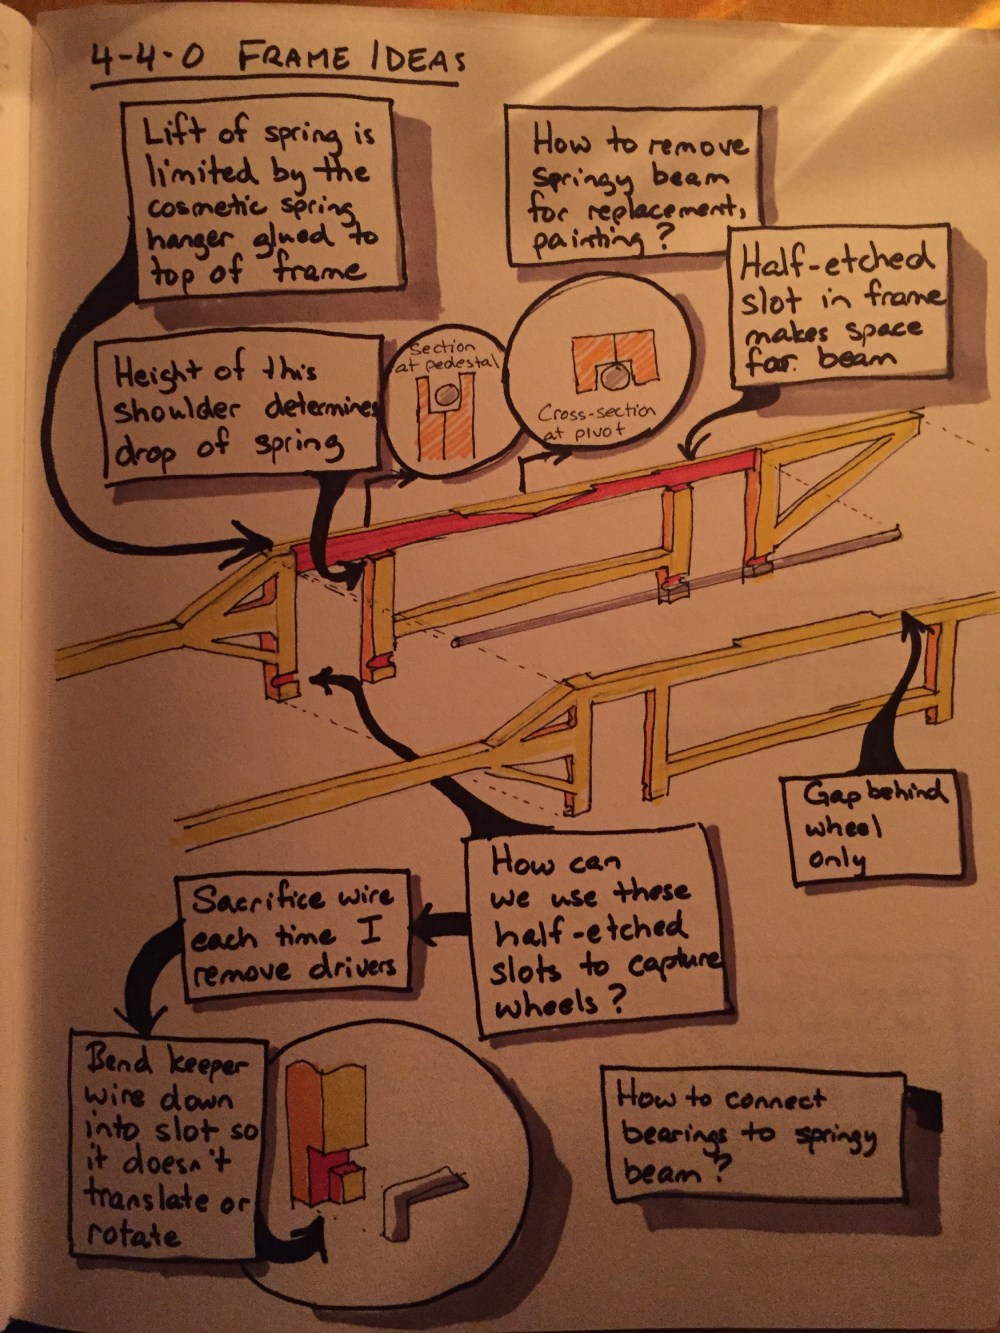 4-4-0 FRAME IDEAS
Lift of spring is
limited by the
cosmetic spring
hanger glued to
top of frame
How to remove
springy beam
for replacement,
painting?
Half-etched
slot in frame
makes space
for beam
Height of this
shoulder determines
drop of spring
Section
at pedestal
Cross-section
at pivot
Gap behind
wheel
only
How can
we use these
half-etched
slots to capture
wheels?
Sacrifice wire
each time I
remove drivers
Bend keeper
wire down
into slot so
it doesn't
translate or
rotate
How to connect
bearings to springy
beam?